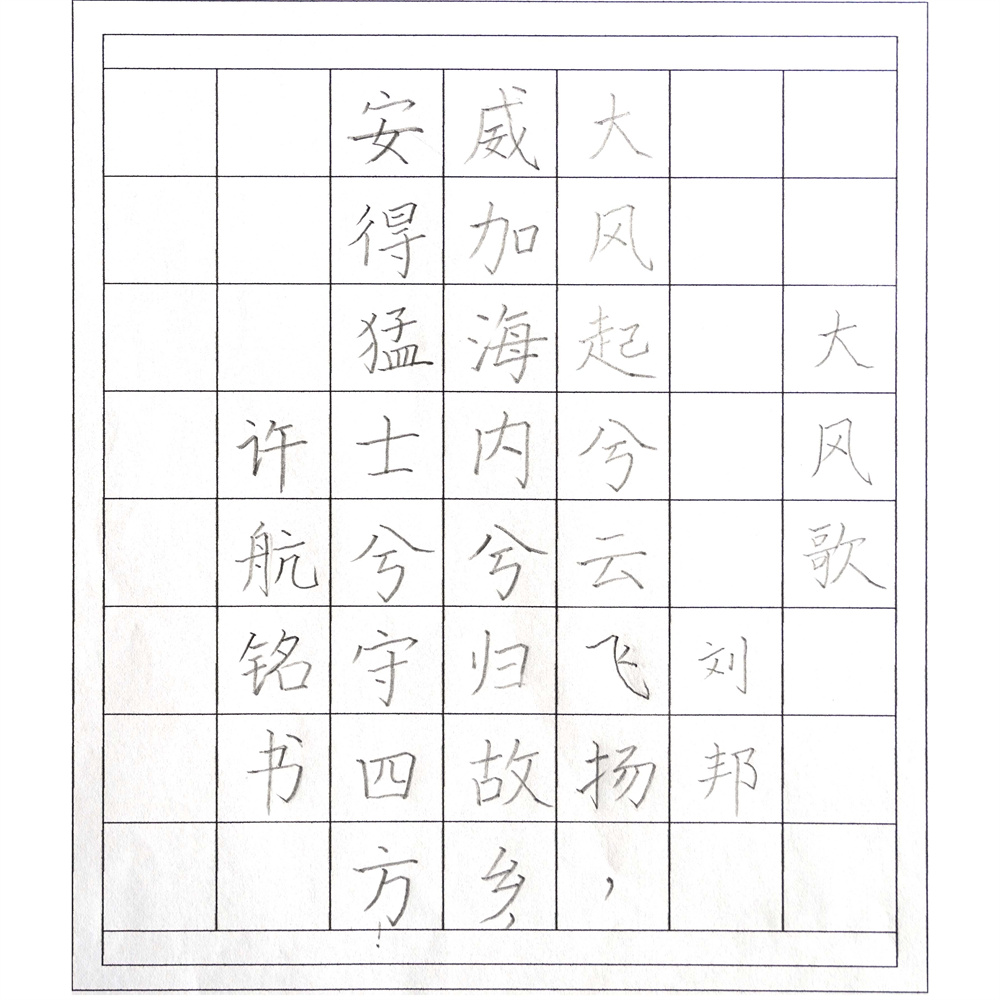 大风歌
刘邦
大风起兮云飞扬，
威加海内兮归故乡，
安得猛士兮守四方！
许航铭书